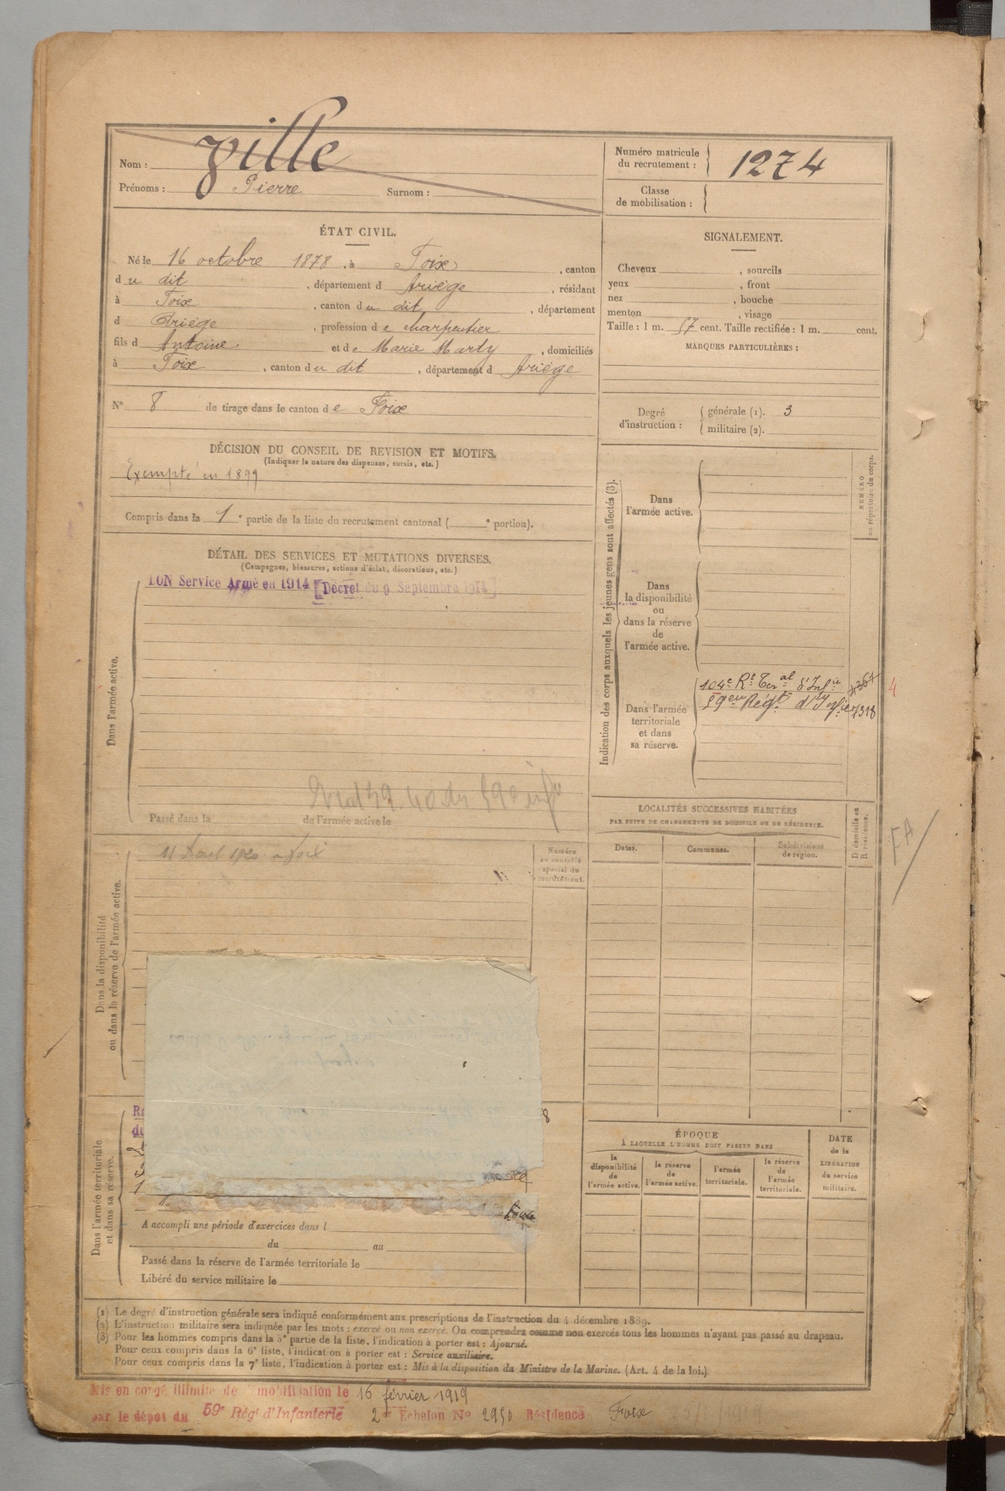 Nom : Ville
Prénoms : Pierre Surnom :
Numéro matricule du recrutement : 1274
Classe de mobilisation :
ÉTAT CIVIL.
Né le 16 octobre 1878, à Foix, canton
du dit, département d Ariège, résidant
à Foix, canton du dit, département
d Ariège, profession de charpentier
fils d Antoine et de Marie Marty, domiciliés
à Foix, canton du dit, département d Ariège
N° 8 de tirage dans le canton de Foix
SIGNALEMENT.
Cheveux , sourcils
yeux , front
nez , bouche
menton , visage
Taille : 1 m. 57 cent. Taille rectifiée : 1 m. cent.
MARQUES PARTICULIÈRES :
Degré d'instruction : générale (1). 3
militaire (2).
DÉCISION DU CONSEIL DE REVISION ET MOTIFS.
(Indiquer la nature des dispenses, sursis, etc.)
Exempté en 1899
Compris dans la 1e partie de la liste du recrutement cantonal ( e portion).
DÉTAIL DES SERVICES ET MUTATIONS DIVERSES.
(Campagnes, blessures, actions d'éclat, décorations, etc.)
BON Service Armé en 1914 [Décret du 9 Septembre 1914]
Dans l'armée active.
Passé dans la de l'armée active le
Dans la disponibilité ou dans la réserve de l'armée active.
Numéro au contrôle spécial du recrutement.
Indication des corps auxquels les jeunes gens sont affectés (3).
NUMÉRO au répertoire du corps.
Dans l'armée active.
Dans la disponibilité ou dans la réserve de l'armée active.
Dans l'armée territoriale et dans sa réserve.
104e Rt Teral d'Infie
59eme Régt d'Infie
LOCALITÉS SUCCESSIVES HABITÉES
PAR SUITE DE CHANGEMENTS DE DOMICILE OU DE RÉSIDENCE.
Dates. Communes. Subdivisions de région. D domicile ou R résidence.
FA
Dans l'armée territoriale et dans sa réserve.
A accompli une période d'exercices dans l
du au
Passé dans la réserve de l'armée territoriale le
Libéré du service militaire le
ÉPOQUE
À LAQUELLE L'HOMME DOIT PASSER DANS
la disponibilité de l'armée active. la réserve de l'armée active. l'armée territoriale. la réserve de l'armée territoriale.
DATE de la LIBÉRATION du service militaire.
(1) Le degré d'instruction générale sera indiqué conformément aux prescriptions de l'instruction du 4 décembre 1889.
(2) L'instruction militaire sera indiquée par les mots : exercé ou non exercé. On comprendra comme non exercés tous les hommes n'ayant pas passé au drapeau.
(3) Pour les hommes compris dans la 5e partie de la liste, l'indication à porter est : Ajourné.
Pour ceux compris dans la 6e liste, l'indication à porter est : Service auxiliaire.
Pour ceux compris dans la 7e liste, l'indication à porter est : Mis à la disposition du Ministre de la Marine. (Art. 4 de la loi.)
Mis en congé illimité de démobilisation le 16 février 1919
par le dépôt du 59e Régt d'Infanterie 2e Echelon No 2950 Résidence Foix